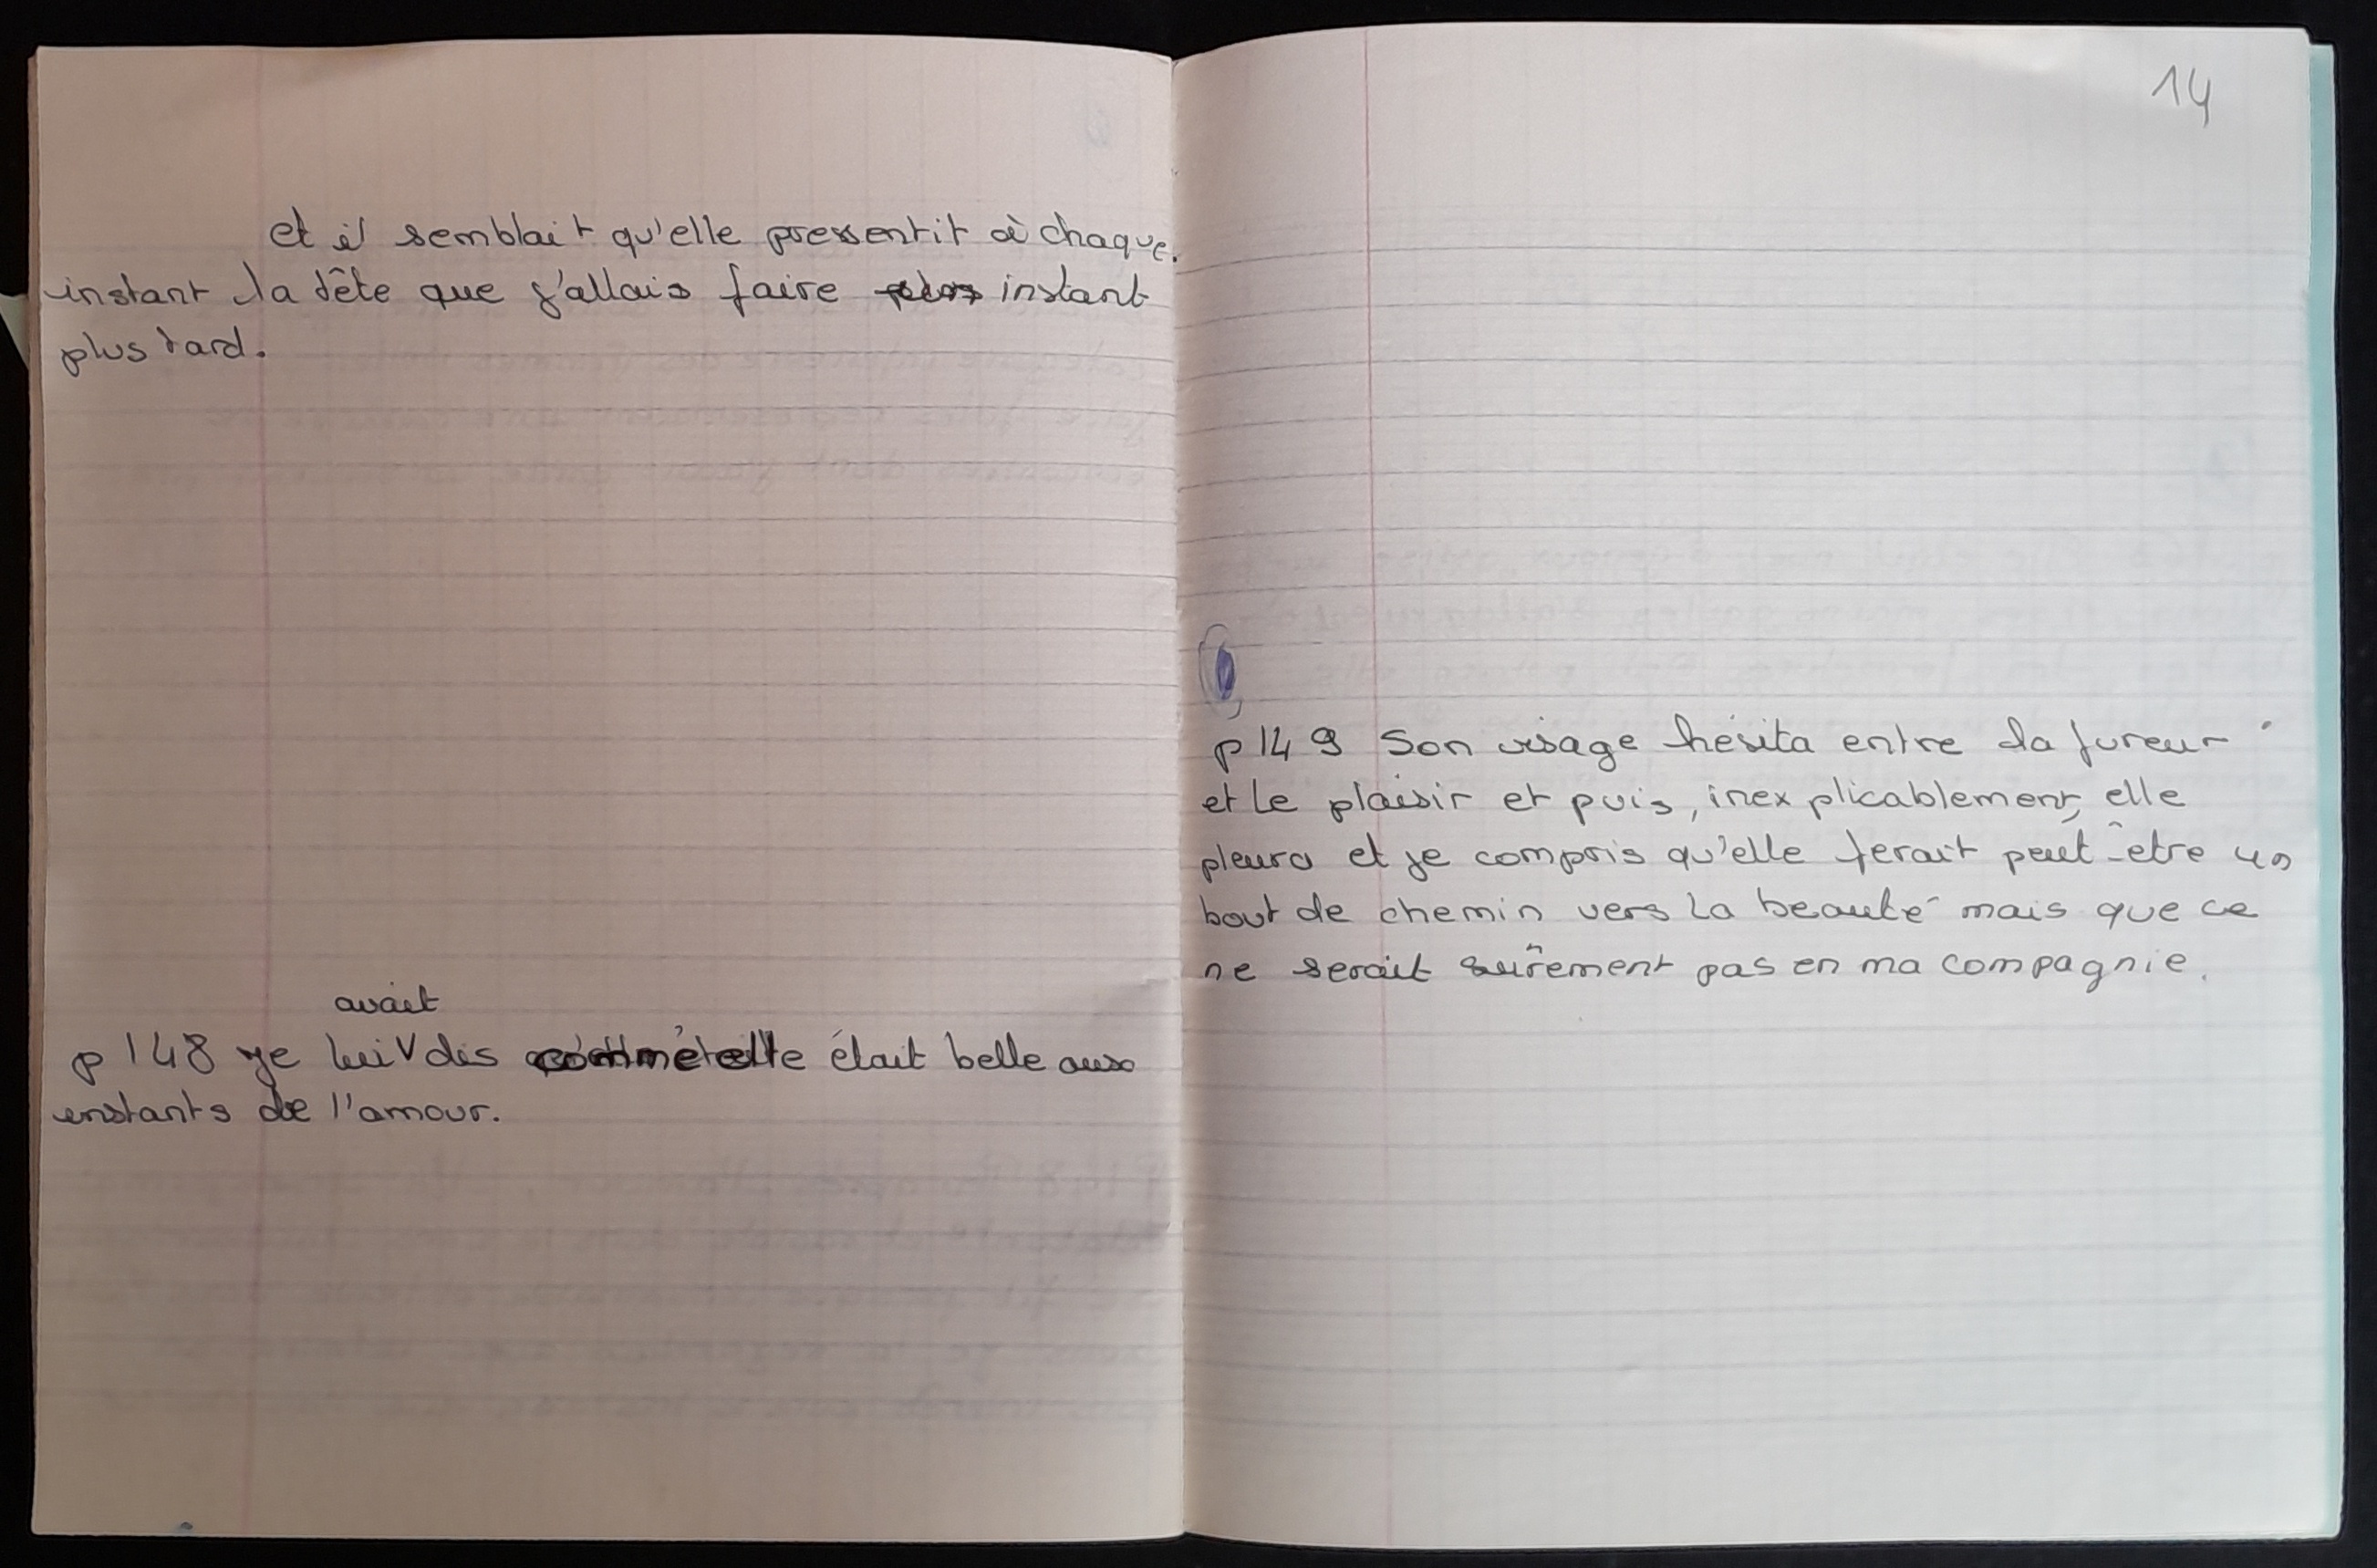 et il semblait qu'elle pressentit à chaque
instant la tête que j'allais faire plus instant
plus tard.
avait
p 148 je lui V dis comme elle était belle aux
instants de l'amour.
14
p 149 Son visage hésita entre la fureur
et le plaisir et puis, inexplicablement, elle
pleura et je compris qu'elle ferait peut-être un
bout de chemin vers la beauté mais que ce
ne serait sûrement pas en ma compagnie.